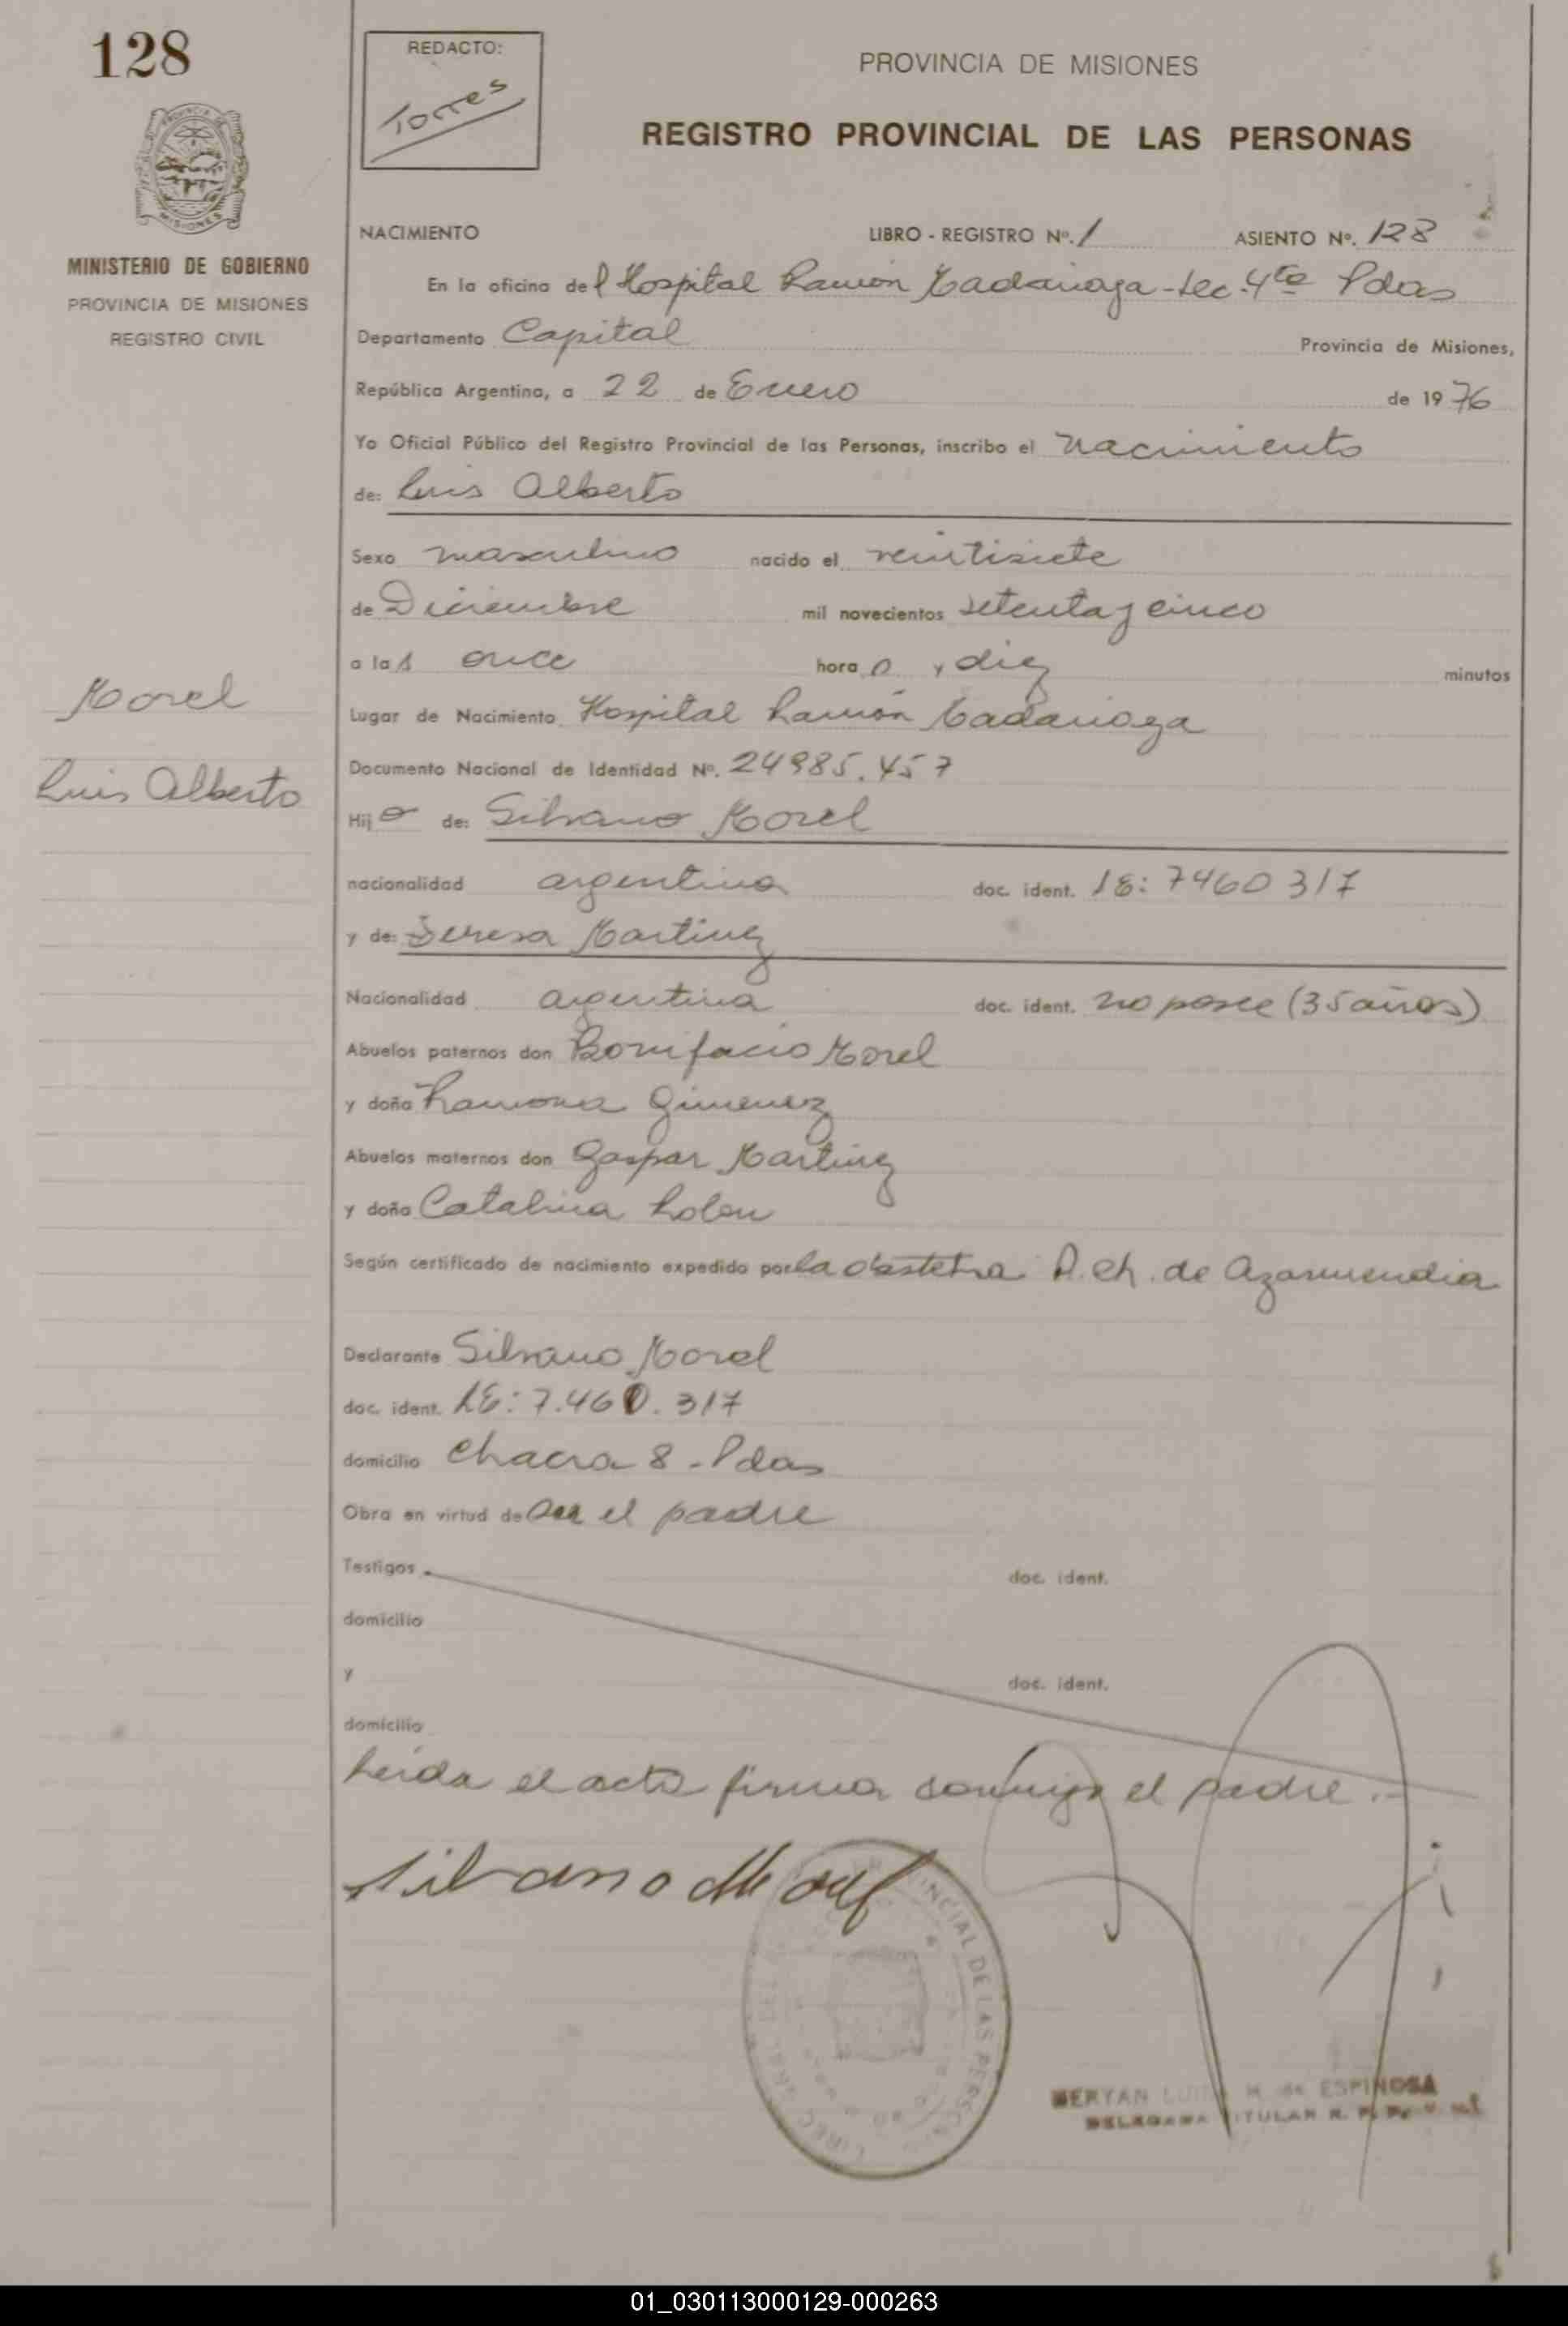 128
REDACTO:
Torres
PROVINCIA DE MISIONES
REGISTRO PROVINCIAL DE LAS PERSONAS
MISIONES
MINISTERIO DE GOBIERNO
PROVINCIA DE MISIONES
REGISTRO CIVIL
NACIMIENTO LIBRO - REGISTRO Nº. 1 ASIENTO Nº. 128
En la oficina del Hospital Ramón Madariaga - Sec. 4ta Pdas
Departamento Capital Provincia de Misiones,
República Argentina, a 22 de Enero de 1976
Yo Oficial Público del Registro Provincial de las Personas, inscribo el nacimiento
de: Luis Alberto
Sexo masculino nacido el veintisiete
de Diciembre mil novecientos setenta y cinco
a las once hora s y diez minutos
Morel
Luis Alberto
Lugar de Nacimiento Hospital Ramón Madariaga
Documento Nacional de Identidad Nº. 24985.457
Hijo de: Silvano Morel
nacionalidad argentina doc. ident. LE: 7460317
y de: Teresa Martinez
Nacionalidad argentina doc. ident. no posee (35 años)
Abuelos paternos don Bonifacio Morel
y doña Ramona Gimenez
Abuelos maternos don Gaspar Martinez
y doña Catalina
Según certificado de nacimiento expedido por la obstetra R. Ch. de Azarmendia
Declarante Silvano Morel
doc. ident. LE: 7.460.317
domicilio Chacra 8 - Pdas
Obra en virtud de ser el padre
Testigos doc. ident.
domicilio
y doc. ident.
domicilio
Leida el acta firma conmigo el padre.-
Silvano Morel
MERYAN M. de ESPINOSA
DELEGADA TITULAR R. P.
01_030113000129-000263